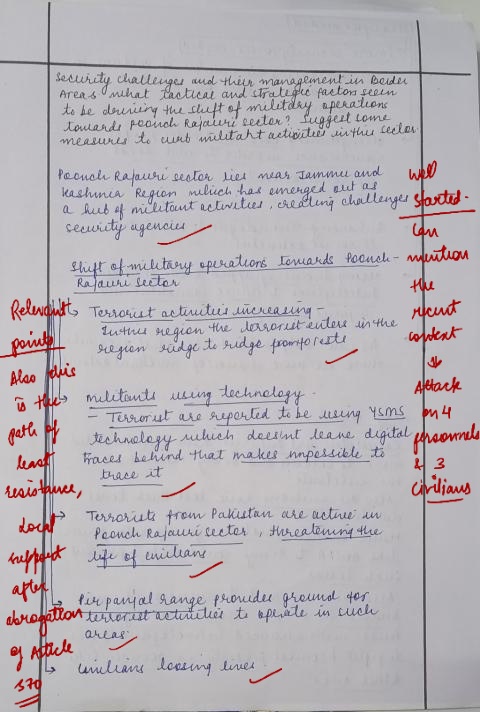 Security challenges and their management in Border
Areas what tactical and strategic factors seem
to be deriving the shift of military operations
towards Poonch Rajauri sector? Suggest some
measures to curb militant activities in this sector.
Poonch Rajauri sector lies near Jammu and
Kashmir Region which has emerged out as
a hub of militant activities, creating challenges
security agencies
Shift of military operations towards Poonch-
Rajauri Sector
Terrorist activities increasing -
In this region the terrorist enters in the
region ridge to ridge
militants using technology.
- Terrorist are reported to be using YSMS
technology which doesnt leave digital
traces behind that makes impossible to
trace it
Terrorists from Pakistan are active in
Poonch Rajauri Sector, threatening the
life of civilians
Pir panjal range provides ground for
terrorist activities to operate in such
areas.
Civilians loosing lives.
Well
Started.
Can
mention
the
recent
context
Attack
on 4
personnels
& 3
Civilians
Relevant
points
Also this
is the
path of
least
resistance,
Local
support
after
abrogation
of Article
370